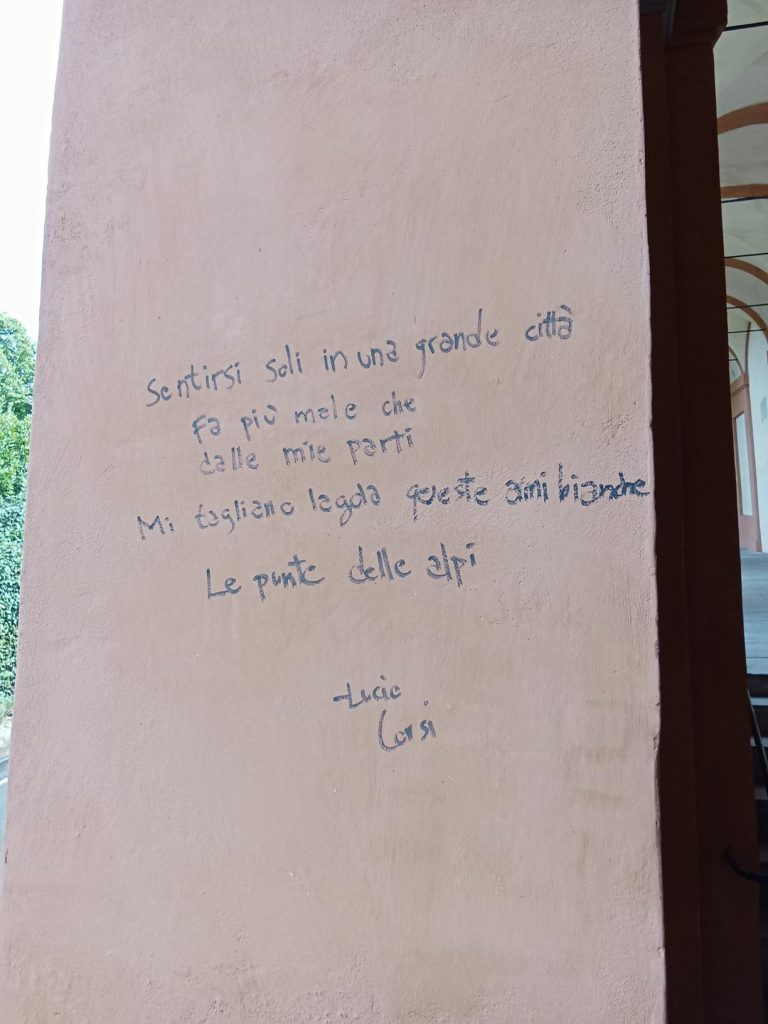 Sentirsi soli in una grande città
Fa più male che
dalle mie parti
Mi tagliano la gola queste armi bianche
Le punte delle alpi
-Lucio
Corsi